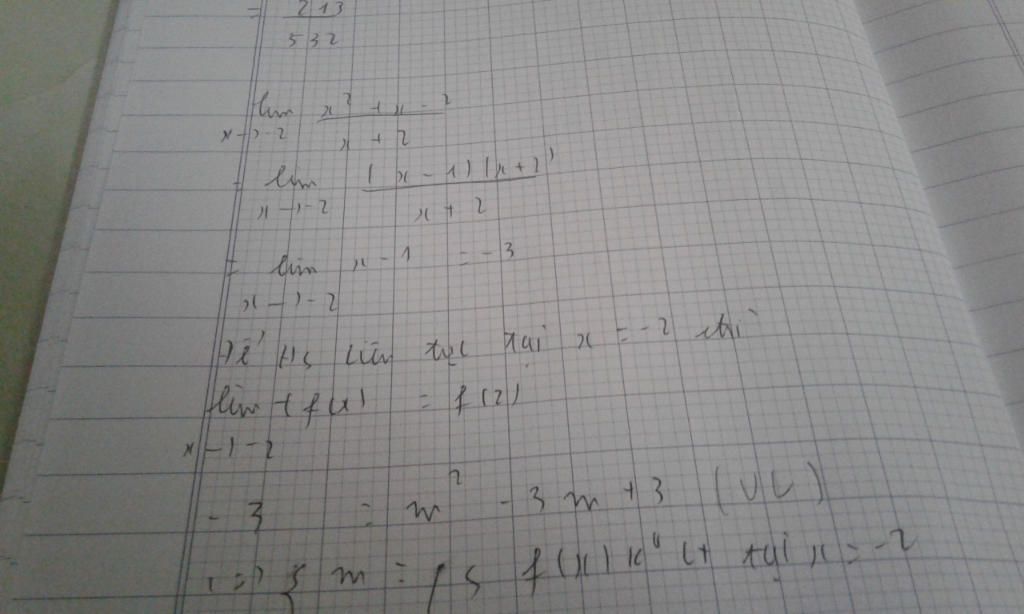 = 213
532
lim x² + x - 2
x → -2 x + 2
= lim (x - 1)(x + 2)
x → -2 x + 2
= lim x - 1 = -3
x → -2
Để Hs liên tục tại x = -2 thì
lim f(x) = f(2)
x → -2
-3 = m² - 3m + 3 (VL)
m = f(x) K" Lt tại x = -2